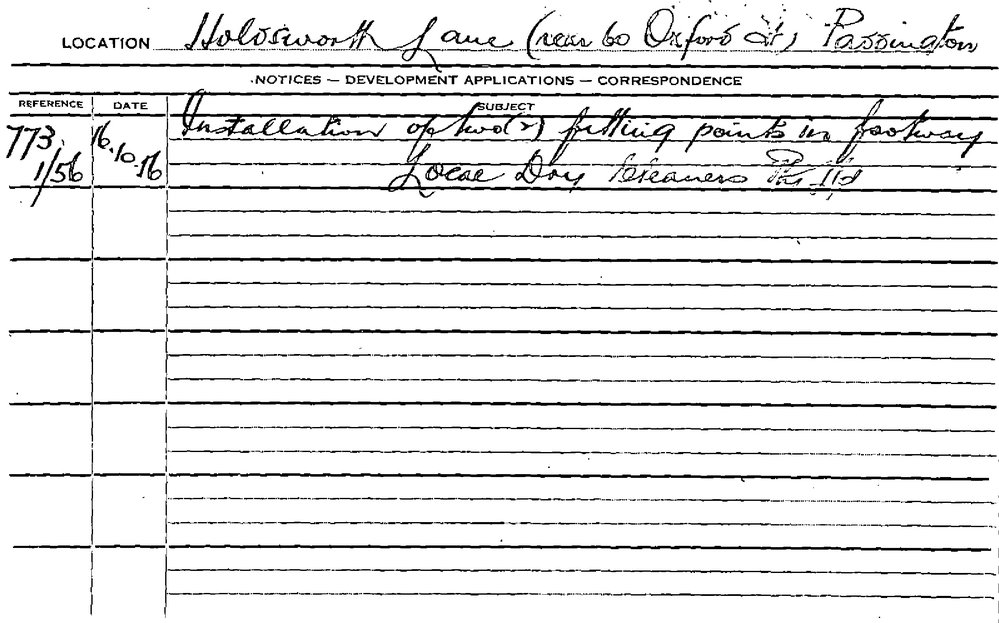 LOCATION Holdsworth Lane (rear 60 Oxford St) Paddington
NOTICES — DEVELOPMENT APPLICATIONS — CORRESPONDENCE
REFERENCE DATE SUBJECT
773 16.10.56 Installation of two (2) filling points in footway
1/56 Local Dry Cleaners Pty. Ltd